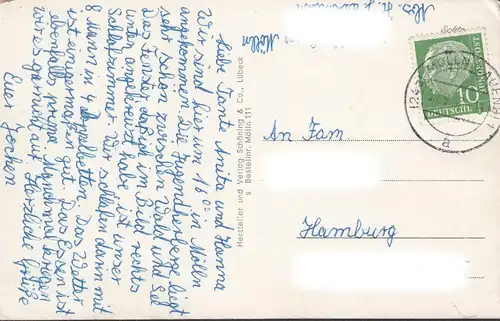 Mölln
Liebe Tante Anita und Hanna
Wir sind hier um 16 00 in Mölln
angekommen. Die Jugendherberge liegt
sehr schön zwischen Wald und See
Das Fenster das ich im Bild rechts
unten angekreuzt habe ist unser
Schlafzimmer wir schlafen darin mit
8 Mann in 4 Doppelbetten. Das Wetter
ist gut. Das Essen ist
ebenfalls prima. Manchmal kriegen
wir's garnicht auf. Herzliche Grüße
Euer Jochen
Hersteller und Verlag Schöning & Co., Lübeck
s Bestellnr. Mölln 111
MÖLLN
a
10
DEUTSCHE
BUNDESPOST
An Fam
Hamburg